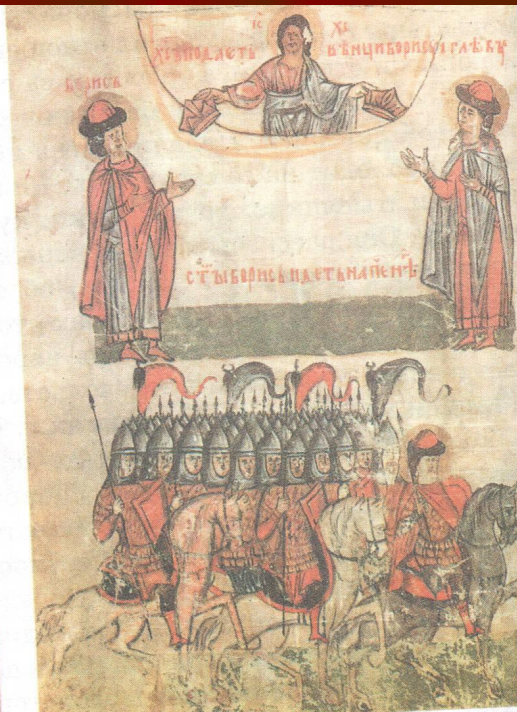 ІС ХС
ХЪ ПОДАЕТЬ ВѢНЦИ БОРИСУ И ГЛѢБУ
БОРИСЪ
СТЫ БОРИСЬ ИДЕТЬ НА ПЕЧ